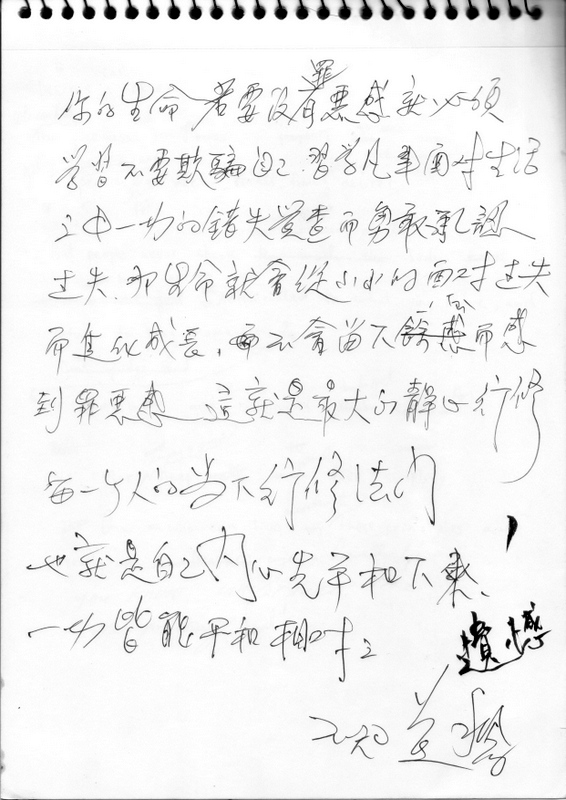 你的生命若要沒有罪惡感就必須
學習不要欺騙自己.習學凡事面對生活
之中一切的錯失覺查而勇敢承認
过失.那生命就會從小小的面对过失
而進化成長,而不會留下遺憾而感
到罪惡感 這就是最大的靜心行修
每一个人的当下行修法门
也就是自己內心先平和下來、
一切皆能平和相对之
遺憾